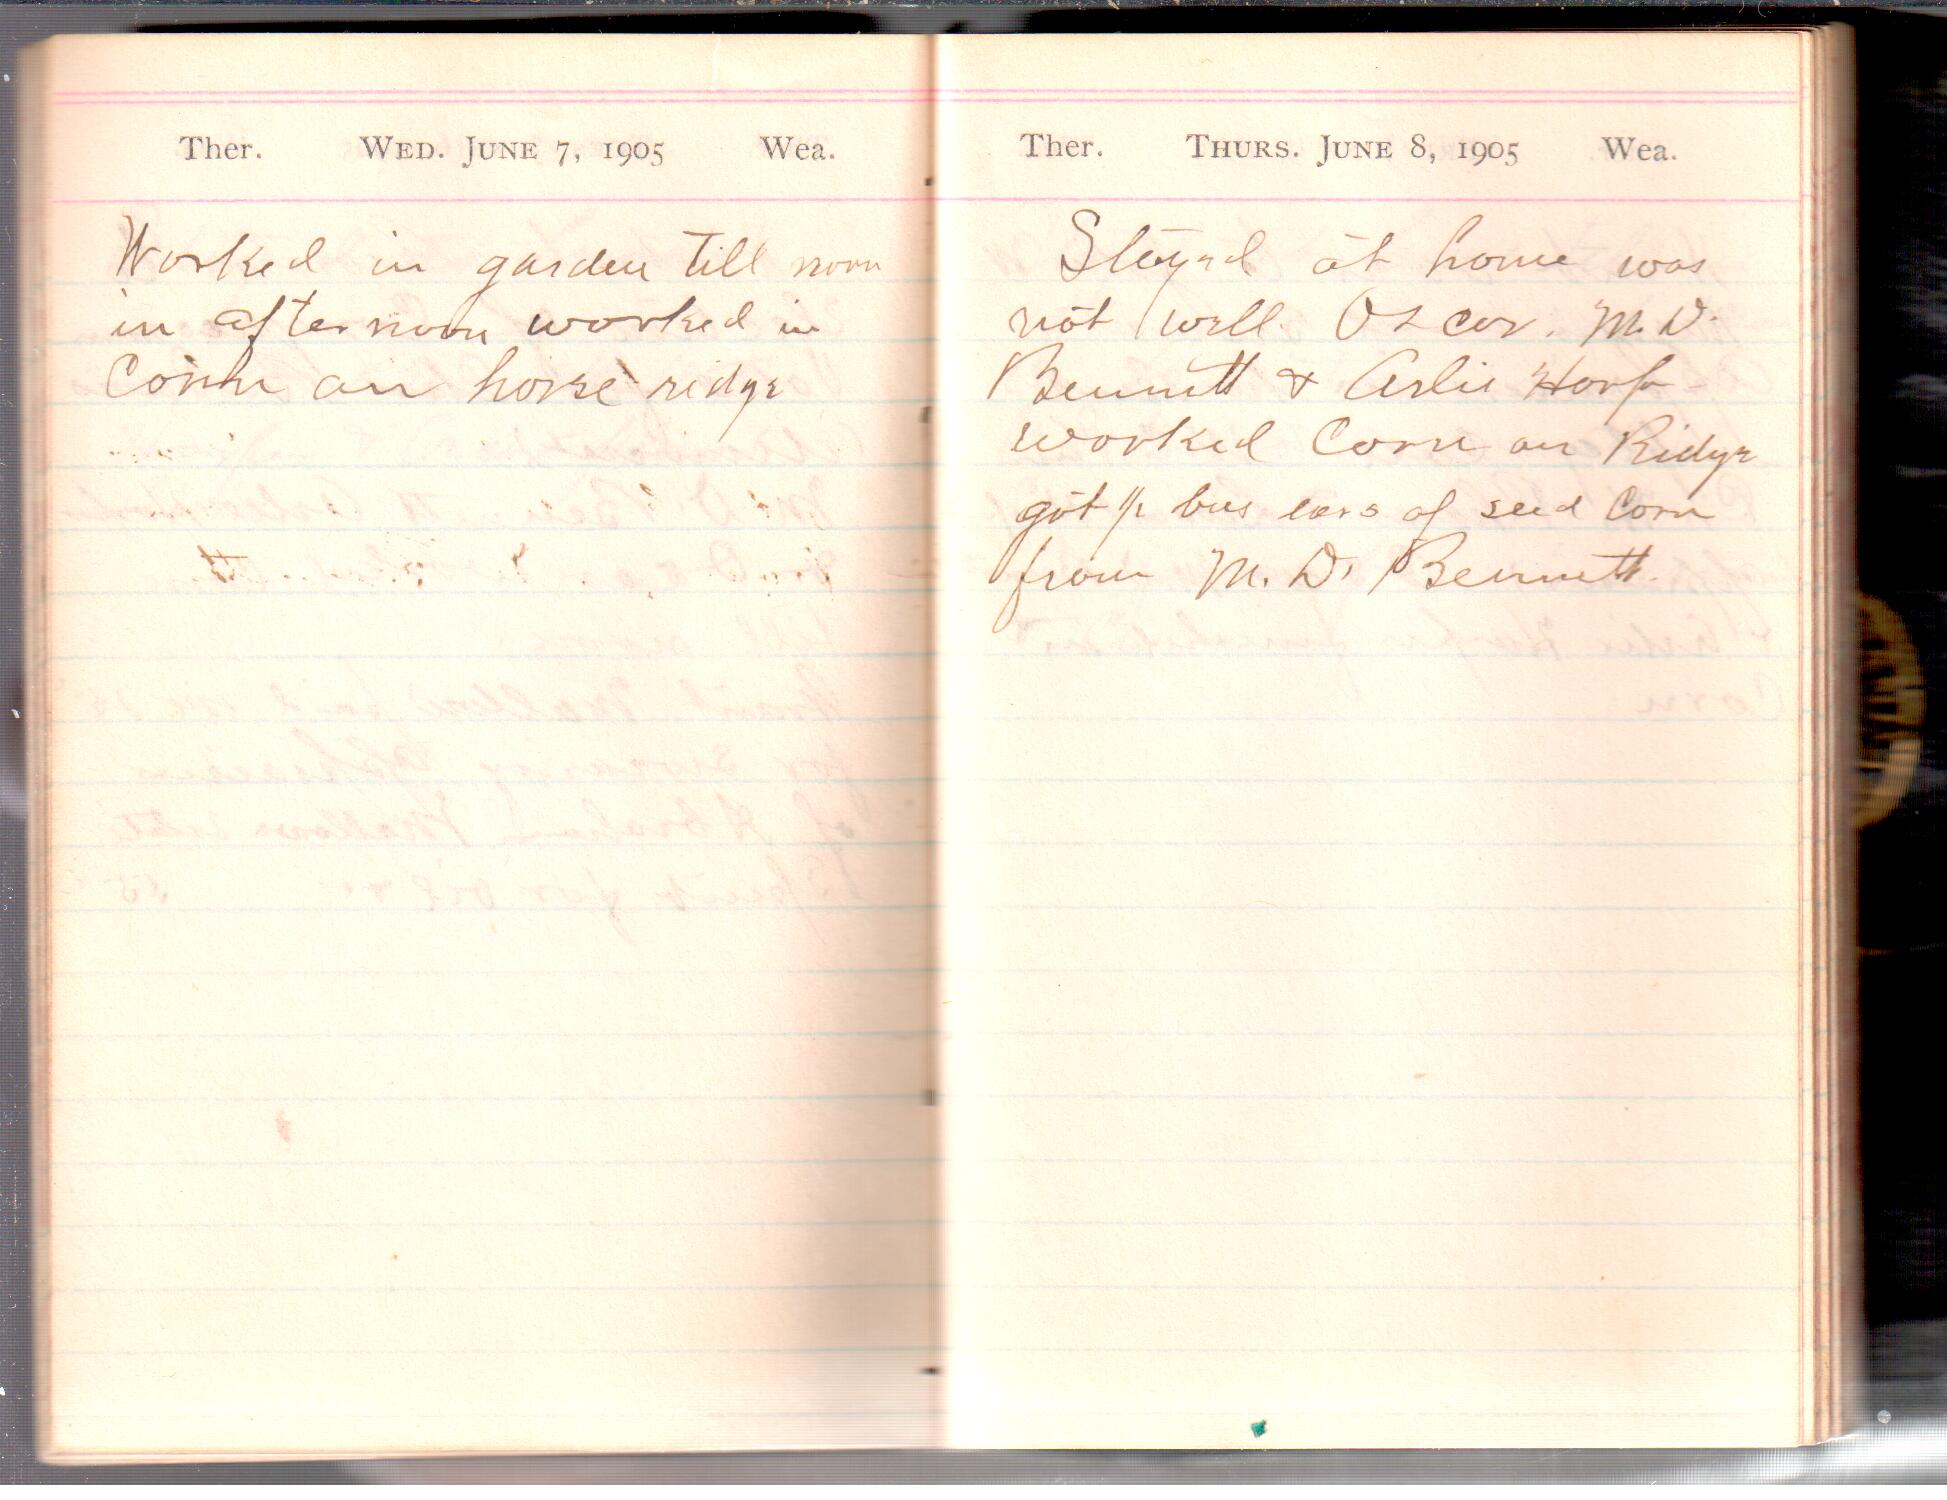 Ther. WED. JUNE 7, 1905 Wea.
Worked in garden till noon
in afternoon worked in
Corn on horse ridge
Ther. THURS. JUNE 8, 1905 Wea.
Stayed at home was
not well. Oscar, M. D.
Bennett & Arlie
worked Corn on Ridge
got bus ears of seed Corn
from M. D. Bennett.